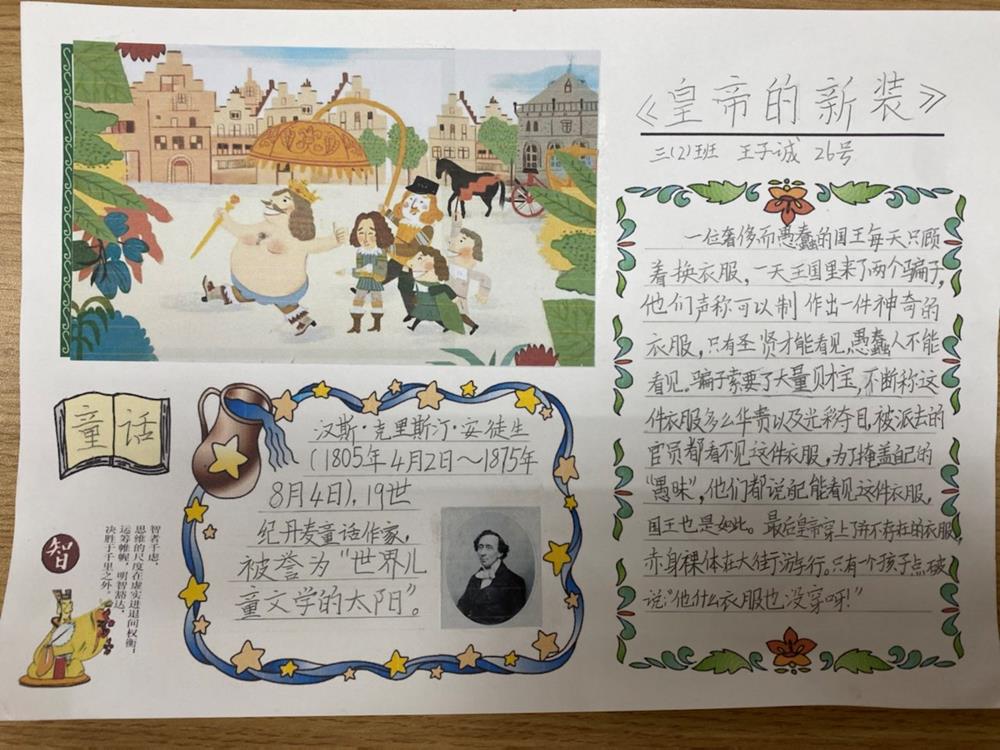 《皇帝的新装》
三(2)班 王子诚 26号
一位奢侈而愚蠢的国王每天只顾
着换衣服，一天王国里来了两个骗子，
他们声称可以制作出一件神奇的
衣服，只有圣贤才能看见，愚蠢人不能
看见。骗子索要了大量财宝，不断称这
件衣服多么华贵以及光彩夺目，被派去的
官员都看不见这件衣服，为了掩盖自己的
“愚昧”，他们都说自己能看见这件衣服，
国王也是如此。最后皇帝穿上了并不存在的衣服，
赤身裸体在大街行游行。只有一个孩子点破
说：“他什么衣服也没穿呀！”
童话
汉斯·克里斯汀·安徒生
（1805年4月2日～1875年
8月4日），19世
纪丹麦童话作家，
被誉为“世界儿
童文学的太阳”。
智
智者千虑，
思维的尺度在虚实进退间权衡，
运筹帷幄，明智豁达，
决胜于千里之外。